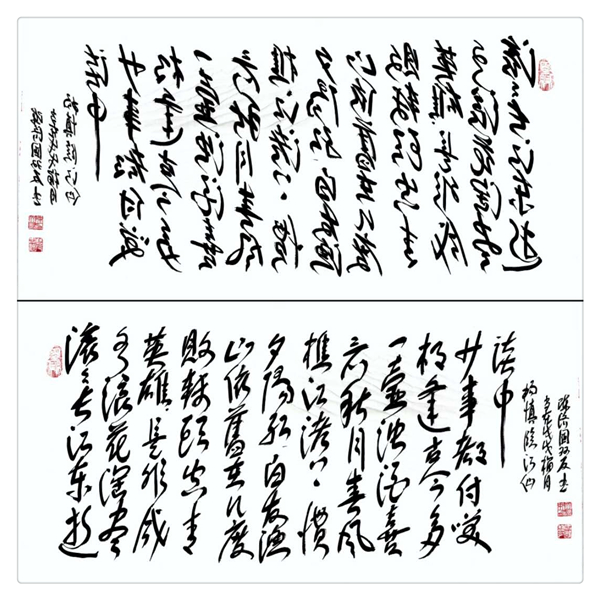 滚滚长江东逝
水浪花淘尽
英雄是非成
败转头空青
山依旧在几度
夕阳红白发渔
樵江渚上惯
看秋月春风
一壶浊酒喜
相逢古今多
少事都付笑
谈中
杨慎临江仙
滚滚长江东逝
水浪花淘尽
英雄是非成
败转头空青
山依旧在几度
夕阳红白发渔
樵江渚上惯
看秋月春风
一壶浊酒喜
相逢古今多
少事都付笑
谈中
杨慎临江仙